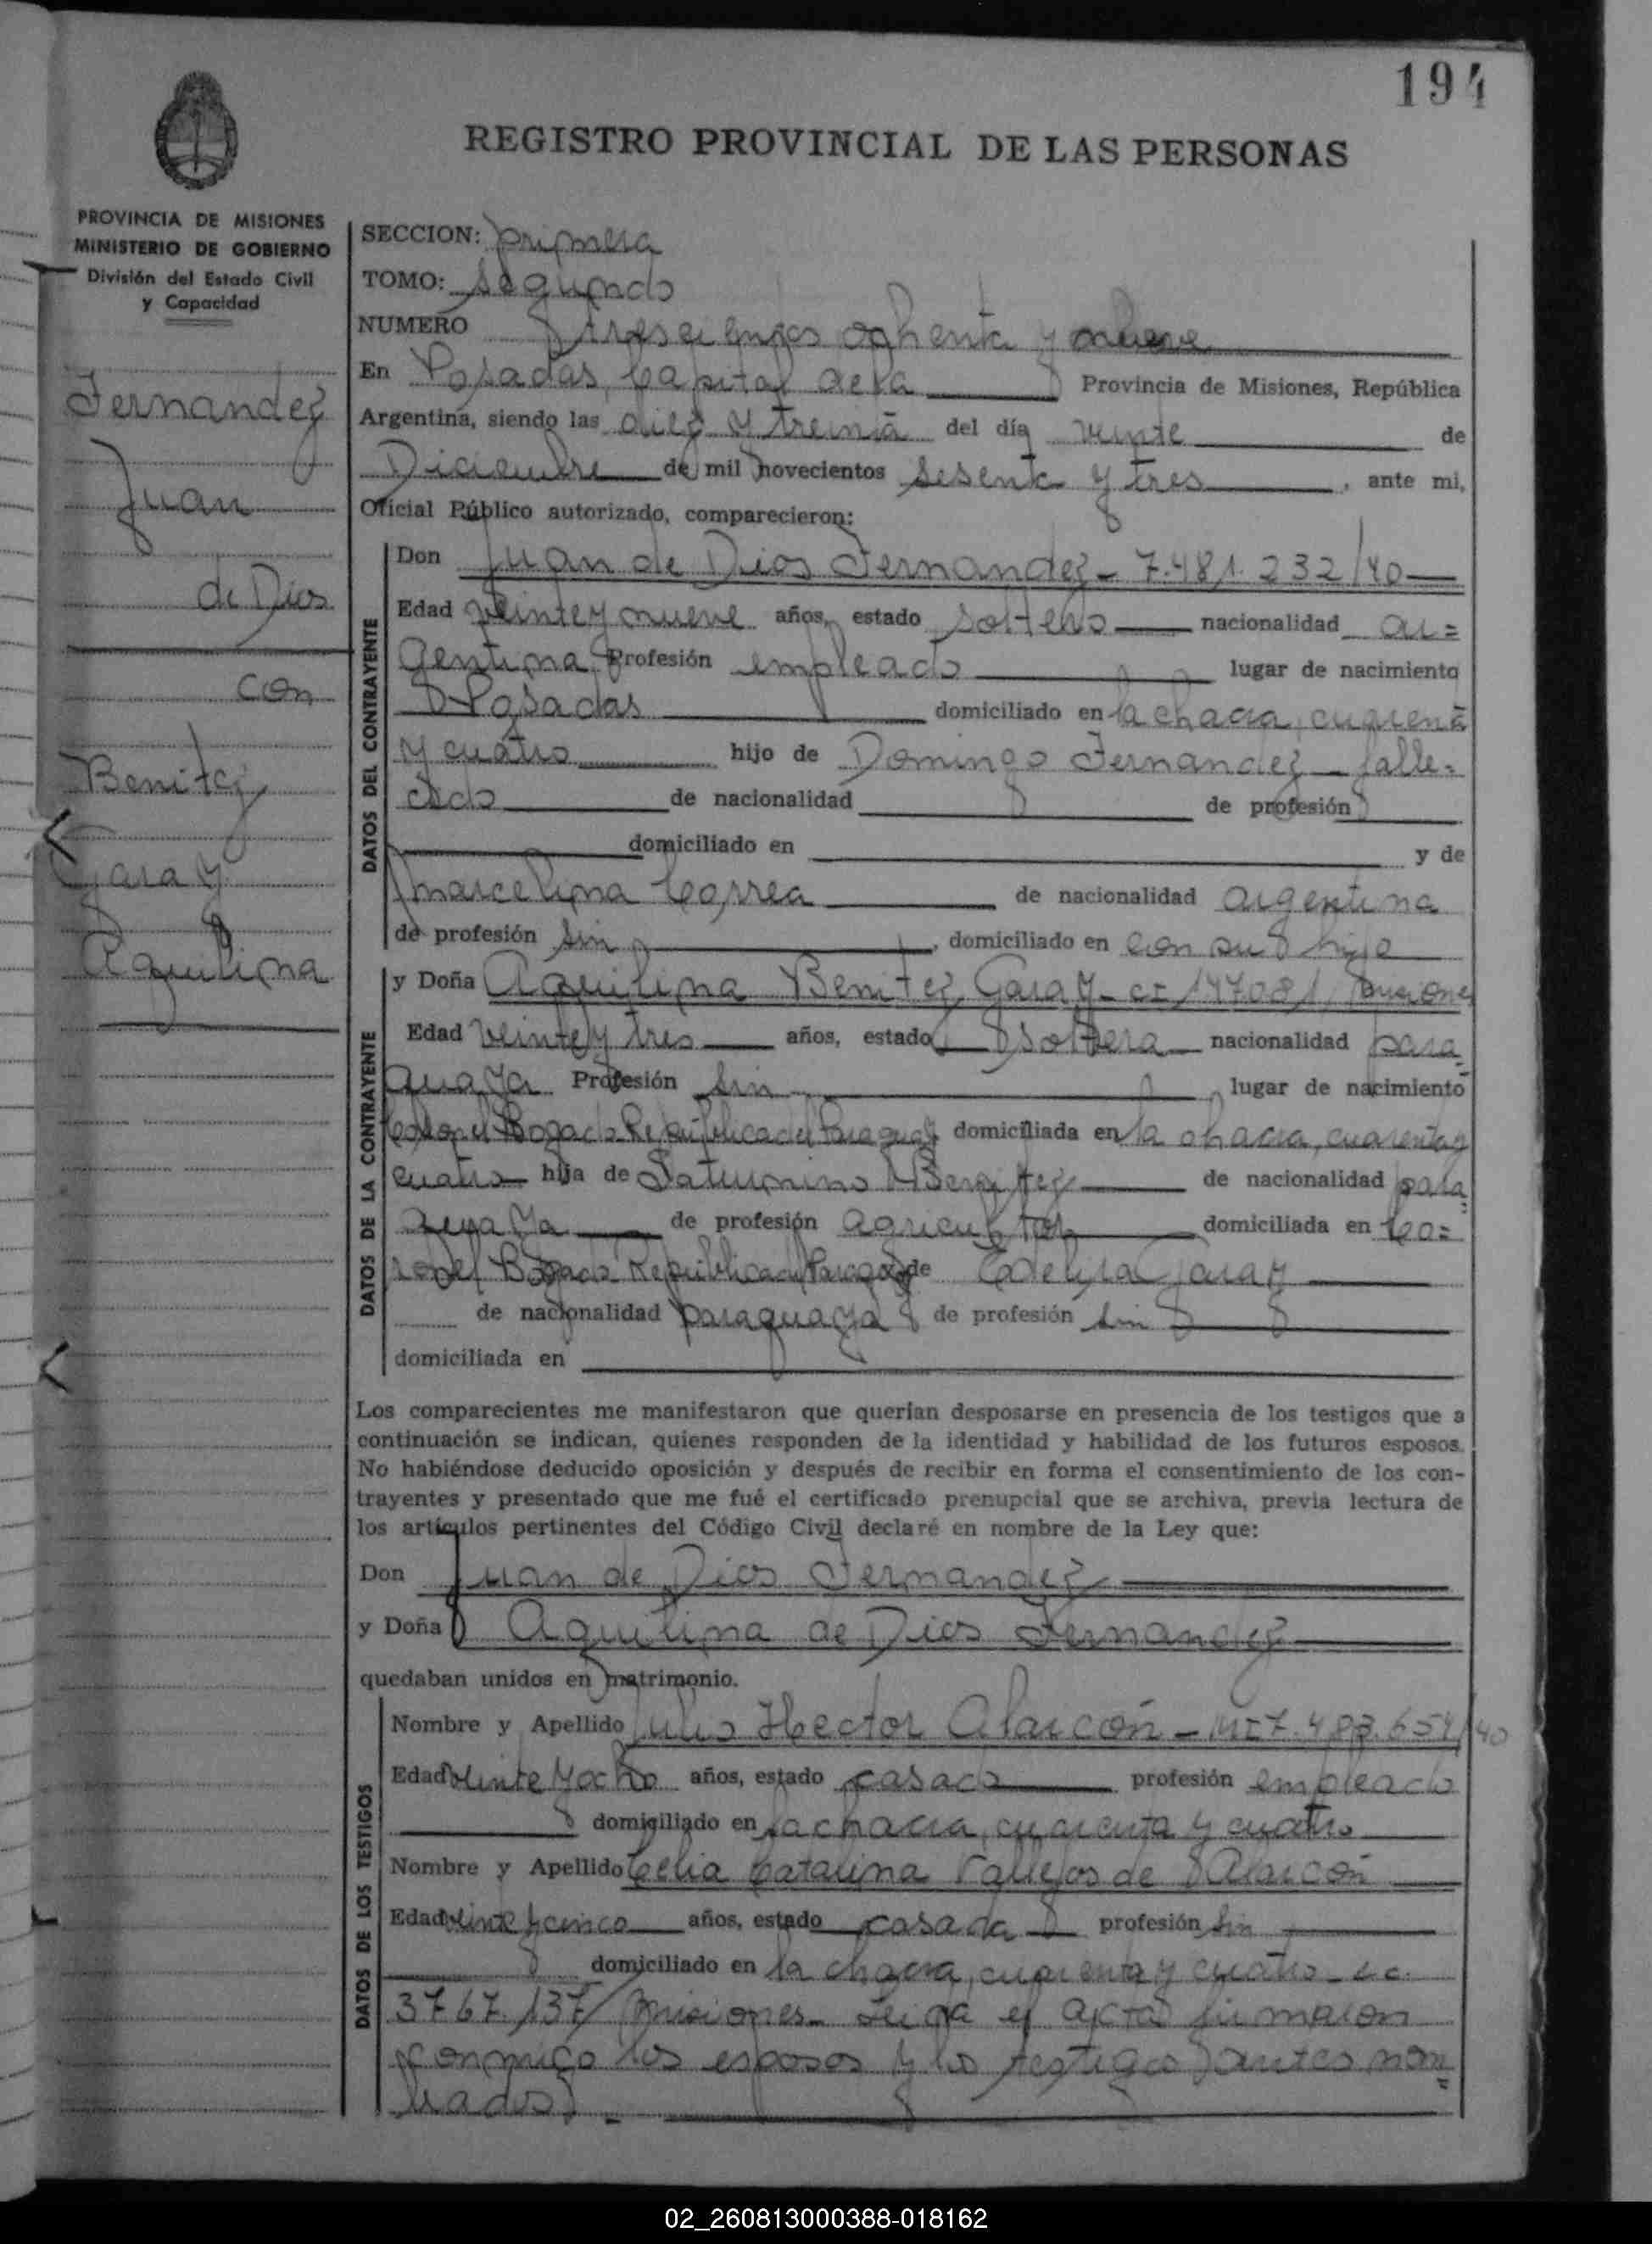 194
REGISTRO PROVINCIAL DE LAS PERSONAS
PROVINCIA DE MISIONES
MINISTERIO DE GOBIERNO
División del Estado Civil
y Capacidad
Fernandez
Juan
de Dios
con
Benitez
Garay
Aquilina
SECCION: primera
TOMO: segundo
NUMERO trescientos ochenta y nueve
En Posadas, Capital de la Provincia de Misiones, República
Argentina, siendo las diez y treinta del día veinte de
Diciembre de mil novecientos sesenta y tres, ante mi,
Oficial Público autorizado, comparecieron:
DATOS DEL CONTRAYENTE
Don Juan de Dios Fernandez - 7.481.232/40
Edad veinte y nueve años, estado soltero nacionalidad ar=
gentina Profesión empleado lugar de nacimiento
Posadas domiciliado en la chacra, cuarenta
y cuatro hijo de Domingo Fernandez - falle=
cido de nacionalidad de profesión
domiciliado en y de
Marcelina Correa de nacionalidad argentina
de profesión sin, domiciliado en con su hijo
DATOS DE LA CONTRAYENTE
y Doña Aquilina Benitez Garay - CI 147081, Misiones
Edad veinte y tres años, estado soltera nacionalidad para=
guaya Profesión sin lugar de nacimiento
Coronel Bogado República del Paraguay domiciliada en la chacra, cuarenta y
cuatro hija de Saturnino Benitez de nacionalidad para=
guaya de profesión agricultor domiciliada en Co=
ronel Bogado República del Paraguay de Edelira Garay
de nacionalidad paraguaya de profesión sin
domiciliada en
Los comparecientes me manifestaron que querían desposarse en presencia de los testigos que a
continuación se indican, quienes responden de la identidad y habilidad de los futuros esposos.
No habiéndose deducido oposición y después de recibir en forma el consentimiento de los con-
trayentes y presentado que me fué el certificado prenupcial que se archiva, previa lectura de
los artículos pertinentes del Código Civil declaré en nombre de la Ley que:
Don Juan de Dios Fernandez
y Doña Aquilina de Dios Fernandez
quedaban unidos en matrimonio.
DATOS DE LOS TESTIGOS
Nombre y Apellido Julio Hector Alarcón - MI 7.483.654/40
Edad veinte y ocho años, estado casado profesión empleado
domiciliado en la chacra, cuarenta y cuatro
Nombre y Apellido Celia Catalina Vallejos de Alarcón
Edad veinte y cinco años, estado casada profesión sin
domiciliado en la chacra, cuarenta y cuatro - L.C.
3767.137/Misiones - Leida el acta firmaron
conmigo los esposos y los testigos antes nom=
brados. -
02_260813000388-018162